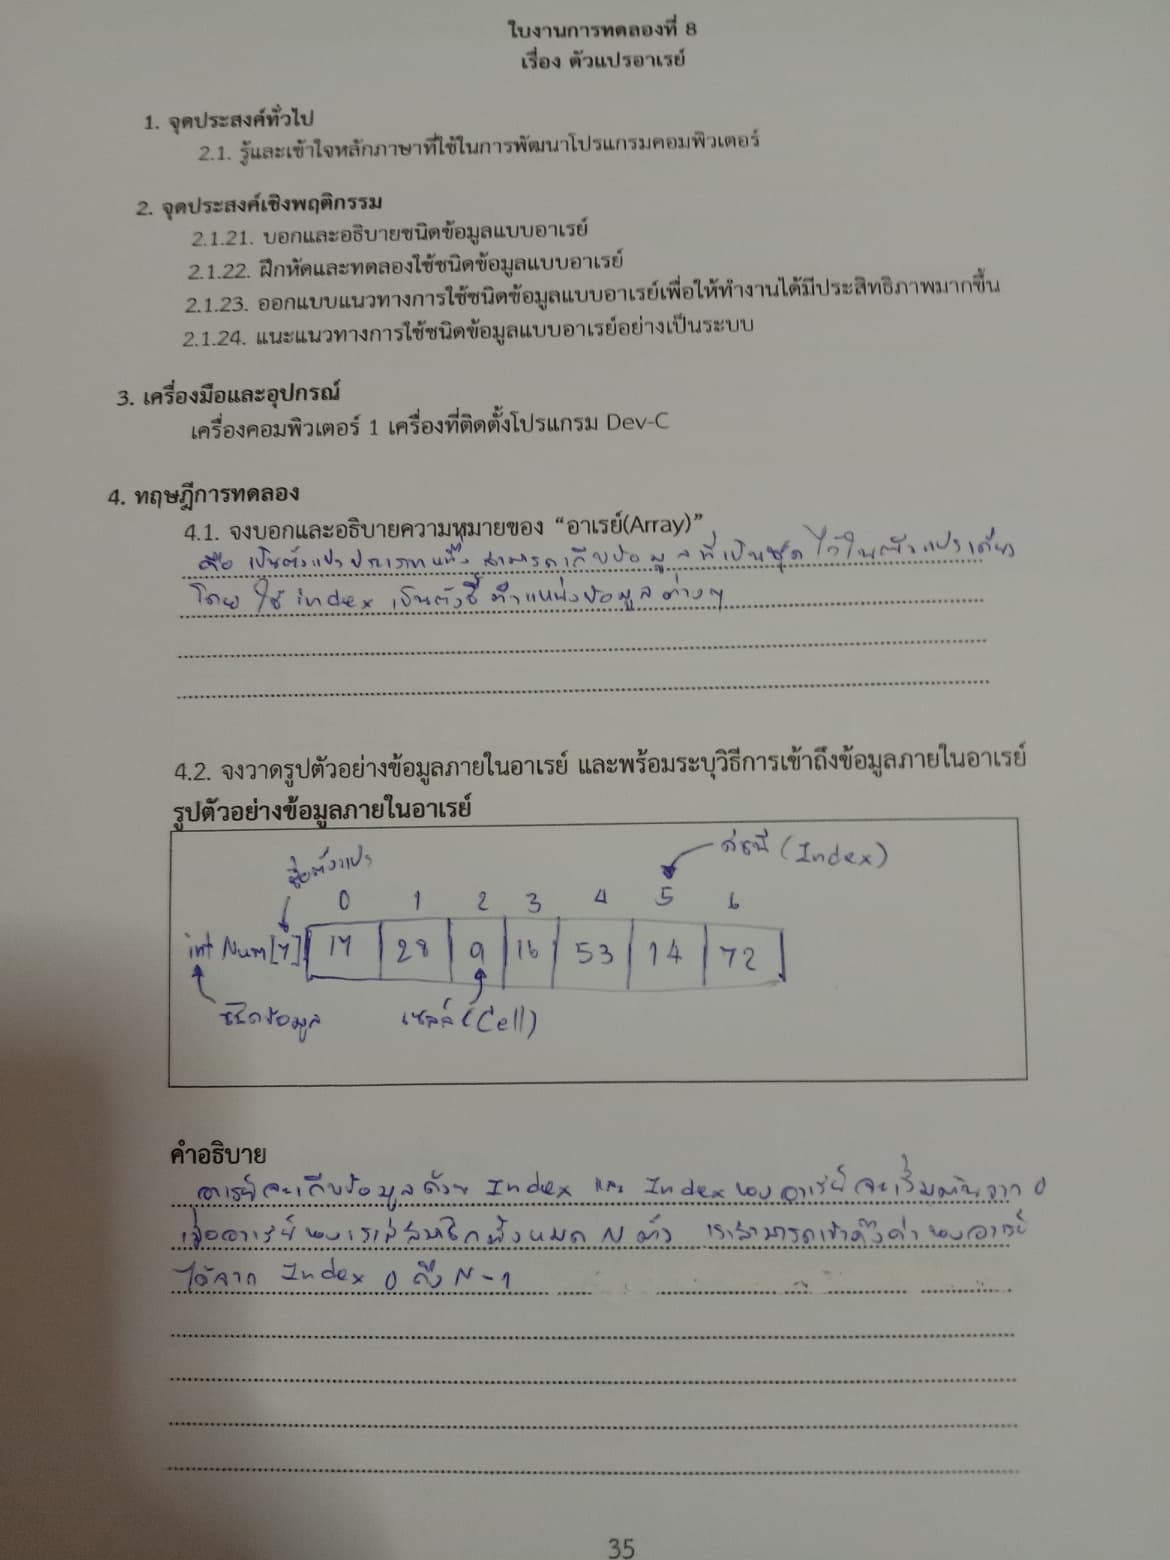 ใบงานการทดลองที่ 8
เรื่อง ตัวแปรอาเรย์
1. จุดประสงค์ทั่วไป
2.1. รู้และเข้าใจหลักภาษาที่ใช้ในการพัฒนาโปรแกรมคอมพิวเตอร์
2. จุดประสงค์เชิงพฤติกรรม
2.1.21. บอกและอธิบายชนิดข้อมูลแบบอาเรย์
2.1.22. ฝึกหัดและทดลองใช้ชนิดข้อมูลแบบอาเรย์
2.1.23. ออกแบบแนวทางการใช้ชนิดข้อมูลแบบอาเรย์เพื่อให้ทำงานได้มีประสิทธิภาพมากขึ้น
2.1.24. แนะแนวทางการใช้ชนิดข้อมูลแบบอาเรย์อย่างเป็นระบบ
3. เครื่องมือและอุปกรณ์
เครื่องคอมพิวเตอร์ 1 เครื่องที่ติดตั้งโปรแกรม Dev-C
4. ทฤษฎีการทดลอง
4.1. จงบอกและอธิบายความหมายของ “อาเรย์(Array)”
คือ เป็นตัวแปรประเภทหนึ่ง สามารถเก็บข้อมูลที่เป็นชุด ไว้ในตัวแปรเดียว
โดยใช้ index เป็นตัวชี้ตำแหน่งข้อมูลต่างๆ
4.2. จงวาดรูปตัวอย่างข้อมูลภายในอาเรย์ และพร้อมระบุวิธีการเข้าถึงข้อมูลภายในอาเรย์
รูปตัวอย่างข้อมูลภายในอาเรย์
ชื่อตัวแปร ดัชนี (Index)
0 1 2 3 4 5 6
int Num[7] 17 28 9 16 53 14 72
ชนิดข้อมูล เซลล์ (Cell)
คำอธิบาย
อาเรย์จะเก็บข้อมูลด้วย Index และ Index ของอาเรย์จะเริ่มต้นจาก 0
เมื่ออาเรย์ของเรามีสมาชิกทั้งหมด N ตัว เราสามารถเข้าถึงค่าของอาเรย์
ได้จาก Index 0 ถึง N-1
35